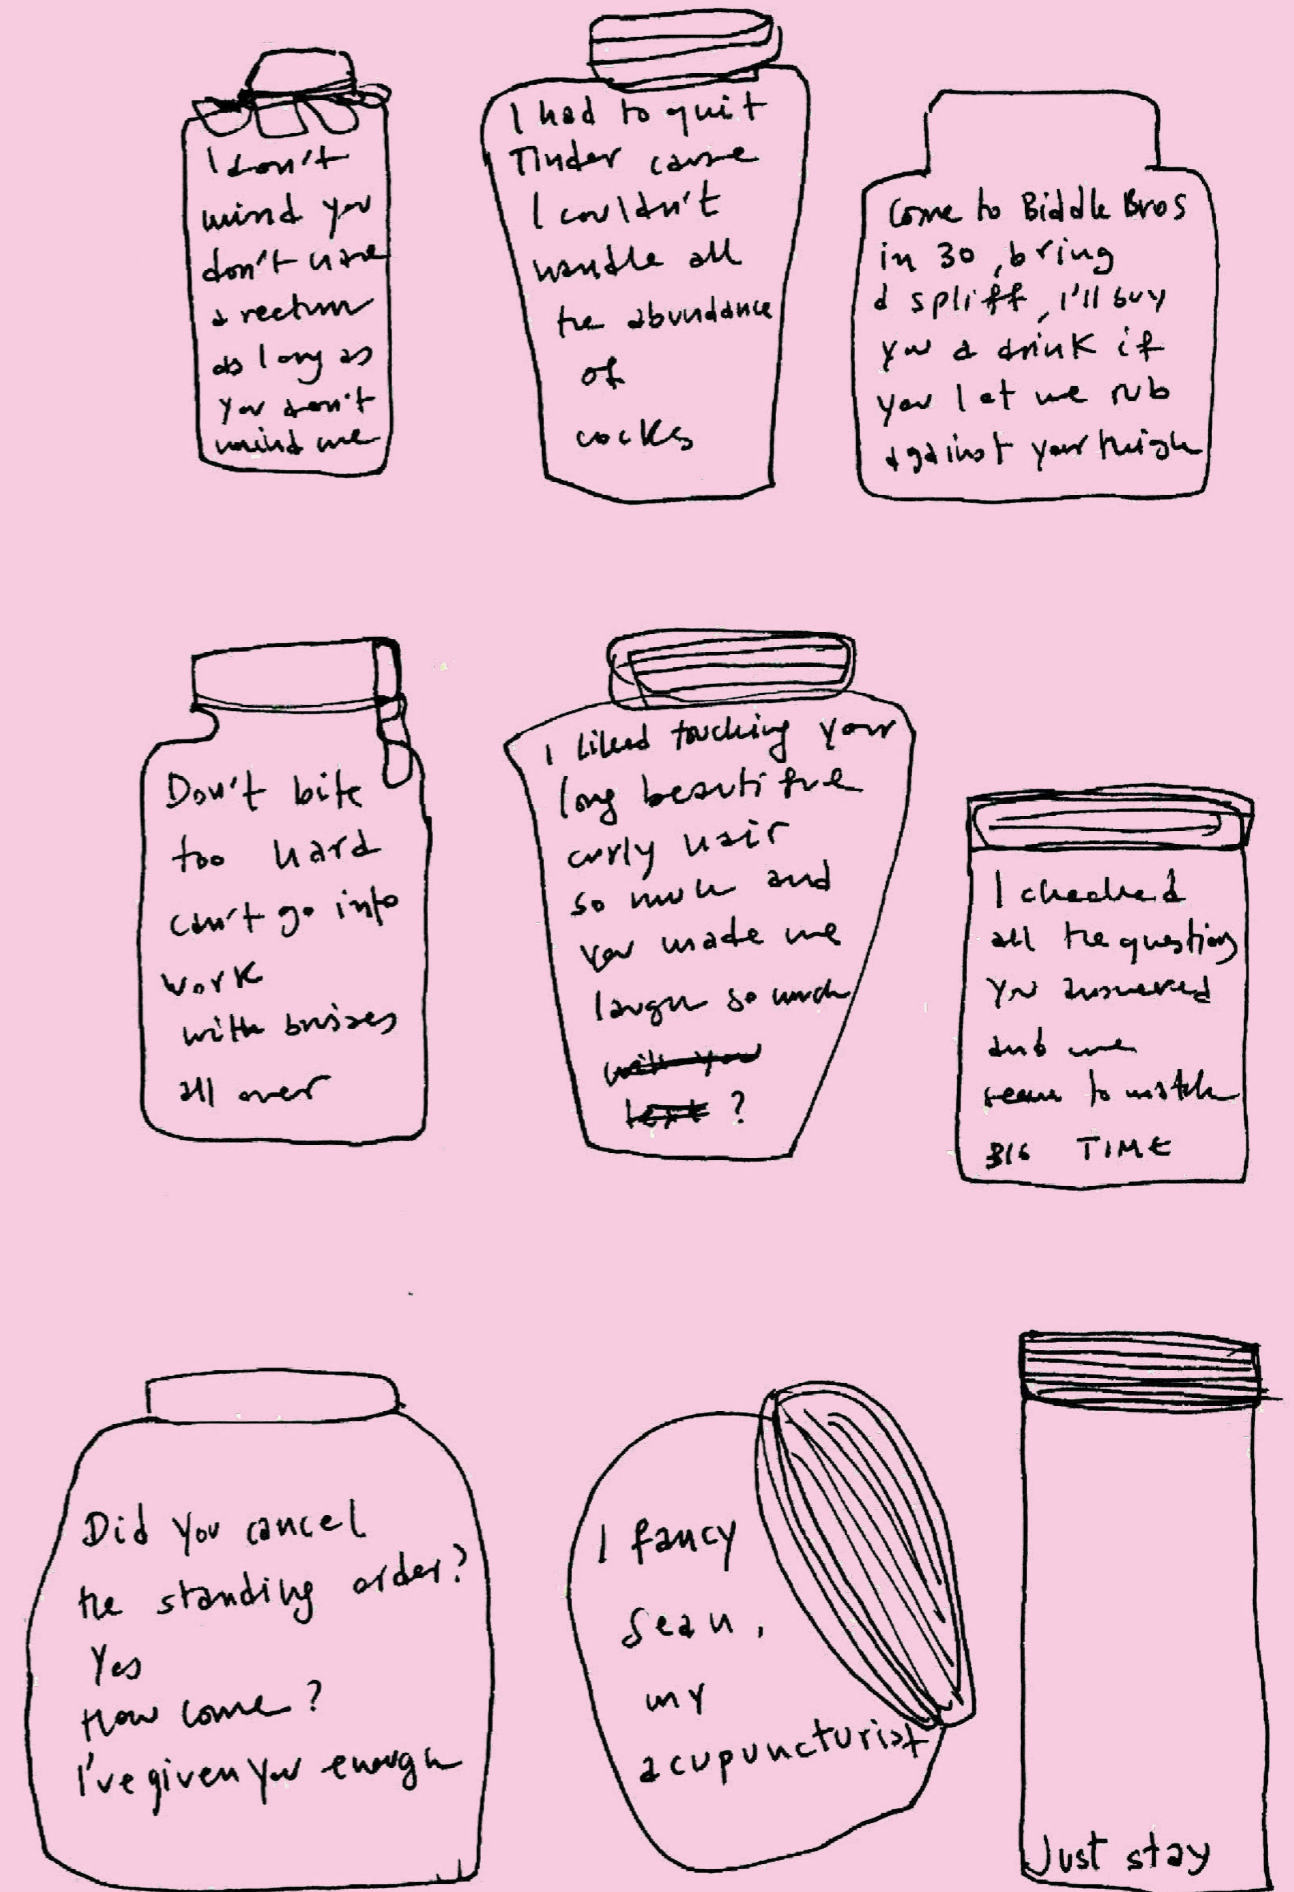 I don't
mind you
don't have
a rectum
as long as
you don't
mind me
I had to quit
Tinder cause
I couldn't
handle all
the abundance
of
cocks
Come to Biddle Bros
in 30, bring
a spliff, I'll buy
you a drink if
you let me rub
against your thigh
Don't bite
too hard
can't go into
work
with bruises
all over
I liked touching your
long beautiful
curly hair
so much and
you made me
laugh so much
with you
text ?
I checked
all the questions
you answered
and we
seem to match
BIG TIME
Did you cancel
the standing order?
Yes
How come?
I've given you enough
I fancy
Sean,
my
acupuncturist
Just stay